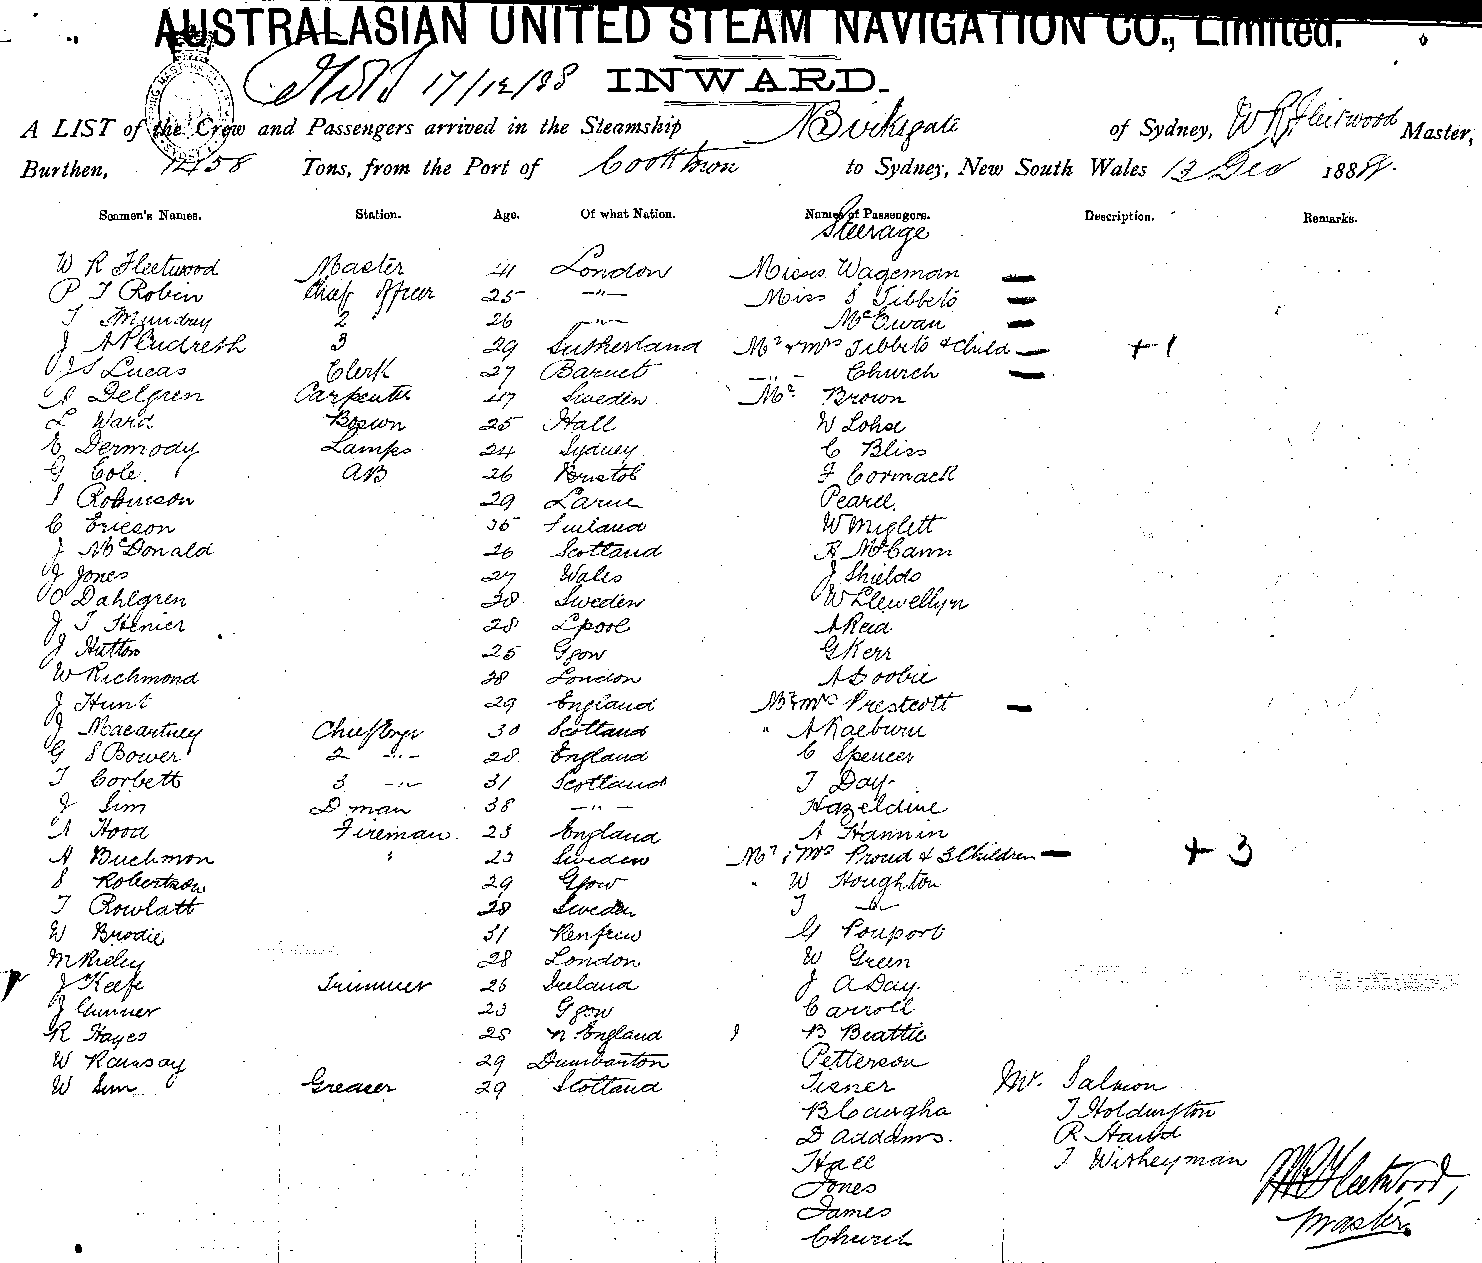 AUSTRALASIAN UNITED STEAM NAVIGATION CO., Limited.
17/12/88 INWARD.
A LIST of the Crew and Passengers arrived in the Steamship Birksgate of Sydney, W R Fleetwood Master,
Burthen, 1458 Tons, from the Port of Cooktown to Sydney, New South Wales 13 Dec 1888.
Seamen's Names. Station. Age. Of what Nation. Names of Passengers. Description. Remarks.
Steerage
W R Fleetwood Master 41 London Misses Wageman
P T Robin Chief Officer 25 -"- Miss S Tibbets
T Mundrey 2 " 26 -"- McEwan
J 3 29 Sutherland Mr & Mrs Tibbets & Child +1
J S Lucas Clerk 27 Barnet -"- Church
A Delgren Carpenter 47 Sweden Mr Brown
L Ward Bosun 25 Hall W Lohse
E Dermody Lamps 24 Sydney C Bliss
G Cole. AB 26 Bristol F Cormack
J Robinson 29 Larne Pearce
C Ericson 35 Finland W Miglett
J McDonald 26 Scotland McCann
J Jones 27 Wales J Shields
O Dahlgren 38 Sweden W Llewellyn
J T Henier 28 Lpool A Reid
J Hutton 25 Ggow G Kerr
W Richmond 38 London A Doobie
J Hunt 29 England Mr & Mrs Prescott
J Macartney Chief Engr 30 Scotland " A Raeburn
G S Bower 2 -"- 28 England C Spencer
T Corbett 3 -"- 31 Scotland T Day
J Sim D man 38 -"- Hazeldine
A Hood Fireman 23 England A Hannin
A Buchmon " 23 Sweden Mr & Mrs Proud & 3 Children +3
S Robertson 29 Ggow " W Houghton
T Rowlatt 28 Sweden T -"-
W Brodie 31 Renfrew G Pouport
M Rieley 28 London W Green
J Keefe Trimmer 26 Ireland J A Day.
J Gunner 23 Ggow Carroll
R Hayes 28 N. England B Beattie
W Ramsay 29 Dumbarton Petterson
W Sim Greaser 29 Scotland Tisner Mr. Salmon
B Caugha T Holdington
D Addams. R Hand
Hall T Wisheyman
Jones W R Fleetwood,
James Master.
Church